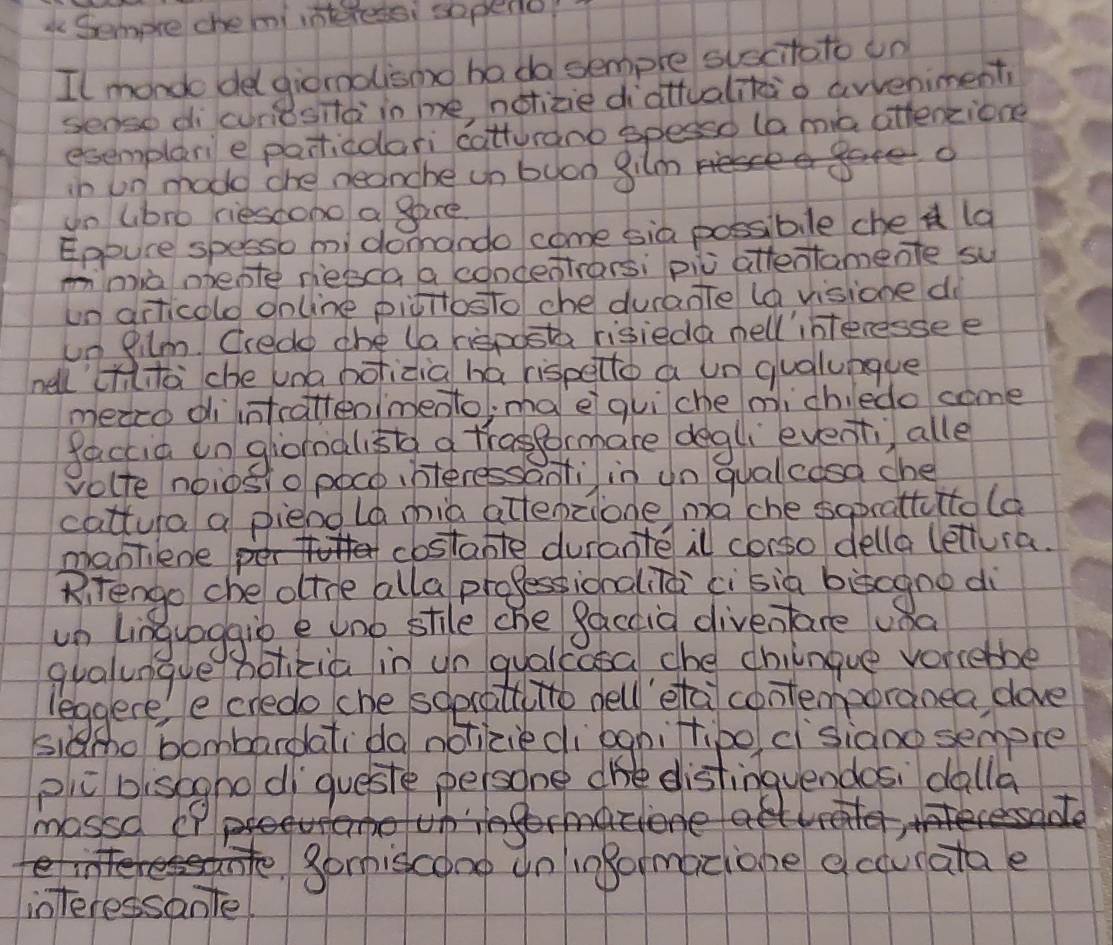 " Sempre che mi interessi saperlo
Il mondo del giornalismo ha da sempre suscitato un
senso di curiosità in me, notizie di attualità o avvenimenti
esemplari e particolari catturano spesso la mia attenzione
in un modo che neanche un buon film riesce a fare o
un libro riescono a fare.
Eppure spesso mi domando come sia possibile che la
mia mente riesca a concentrarsi più attentamente su
un articolo online piuttosto che durante la visione di
un film. Credo che la risposta risieda nell'interesse e
nell'utilità che una notizia ha rispetto a un qualunque
mezzo di intrattenimento, ma è qui che mi chiedo come
faccia un giornalista a trasformare degli eventi, alle
volte noiosi o poco interessanti, in un qualcosa che
cattura a pieno la mia attenzione, ma che soprattutto la
mantiene per tutta costante durante il corso della lettura.
Ritengo che oltre alla professionalità ci sia bisogno di
un linguaggio e uno stile che faccia diventare una
qualunque notizia in un qualcosa che chiunque vorrebbe
leggere, e credo che soprattutto nell'età contemporanea, dove
siamo bombardati da notizie di ogni tipo, ci siano sempre
più bisogno di queste persone che distinguendosi dalla
massa ci procurano un'informazione accurata, interessante
e interessante. forniscono un'informazione accurata e
interessante.